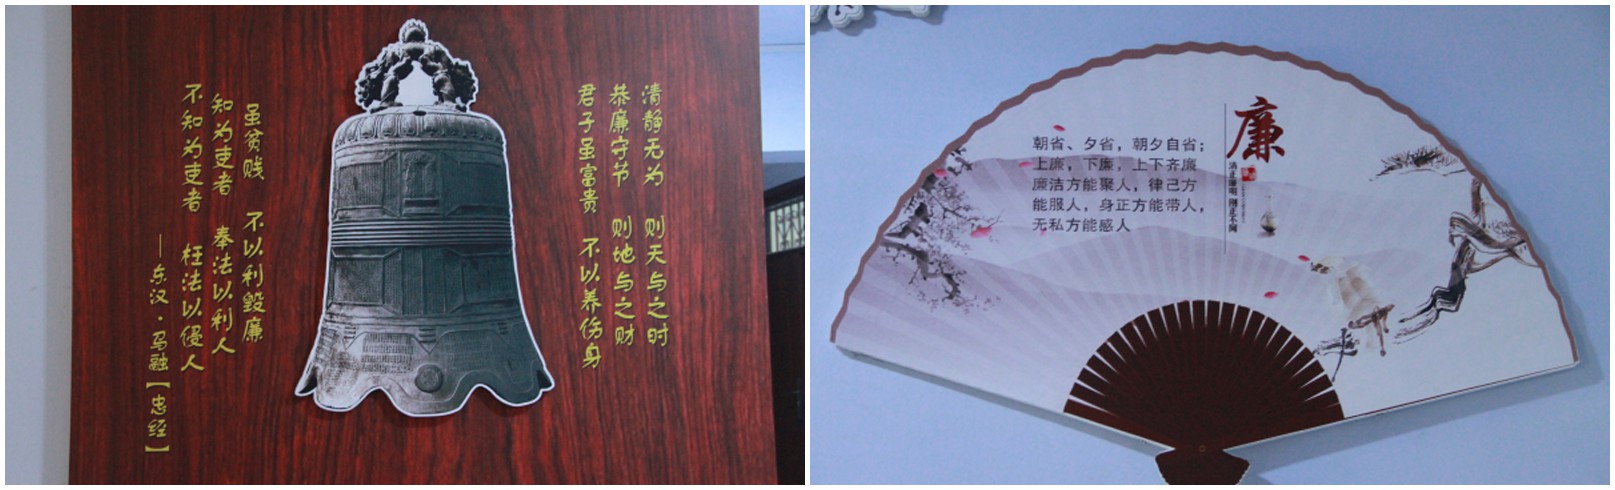 清静无为 则天与之时
恭廉守节 则地与之财
君子虽富贵 不以养伤身
虽贫贱 不以利毁廉
知为吏者 奉法以利人
不知为吏者 枉法以侵人
—东汉·马融【忠经】
廉
清正廉明 刚正不阿
朝省、夕省，朝夕自省；
上廉，下廉，上下齐廉
廉洁方能聚人，律己方
能服人，身正方能带人，
无私方能感人